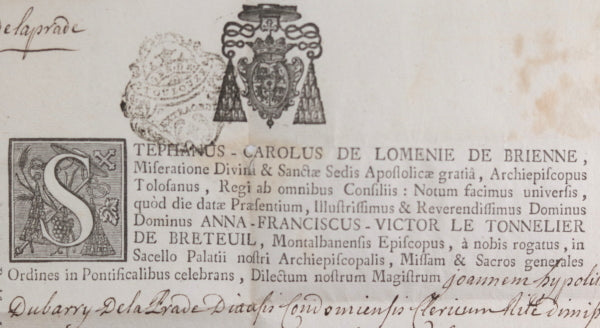 delaprade
STEPHANUS-CAROLUS DE LOMENIE DE BRIENNE,
Miseratione Divinâ & Sanctæ Sedis Apoſtolicæ gratiâ, Archiepiſcopus
Toloſanus, Regi ab omnibus Conſiliis : Notum facimus univerſis,
quòd die datæ Præſentium, Illuſtriſſimus & Reverendiſſimus Dominus
Dominus ANNA-FRANCISCUS-VICTOR LE TONNELIER
DE BRETEUIL, Montalbanenſis Epiſcopus, à nobis rogatus, in
Sacello Palatii noſtri Archiepiſcopalis, Miſſam & Sacros generales
Ordines in Pontificalibus celebrans, Dilectum noſtrum Magiſtrum joannem hypolit
Dubarry Delaprade Diœcesis Condomiensis Clericum Rite dimiss